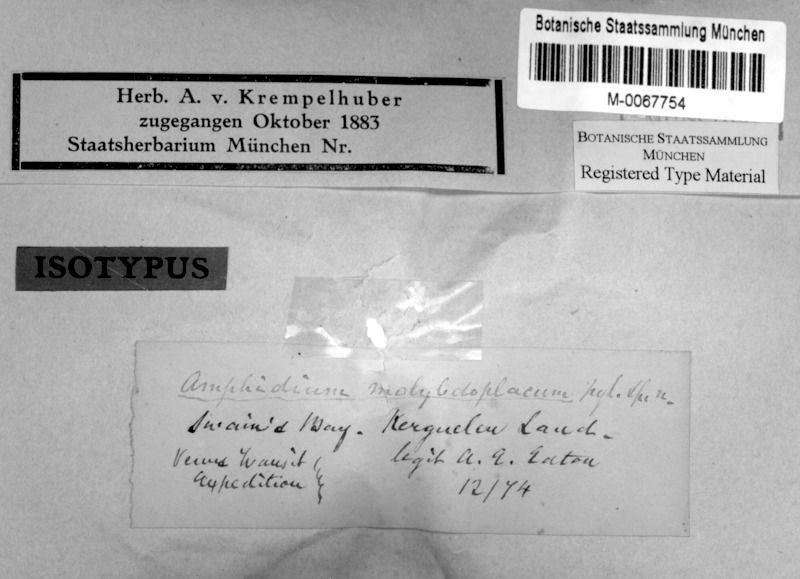 Botanische Staatssammlung München
M-0067754
Herb. A. v. Krempelhuber
zugegangen Oktober 1883
Staatsherbarium München Nr.
BOTANISCHE STAATSSAMMLUNG
MÜNCHEN
Registered Type Material
ISOTYPUS
Amphidium molybdoplacum Nyl. sp. n.
Swain's Bay. Kerguelen Land.
Venus Transit legit A. E. Eaton
Expedition 12/74